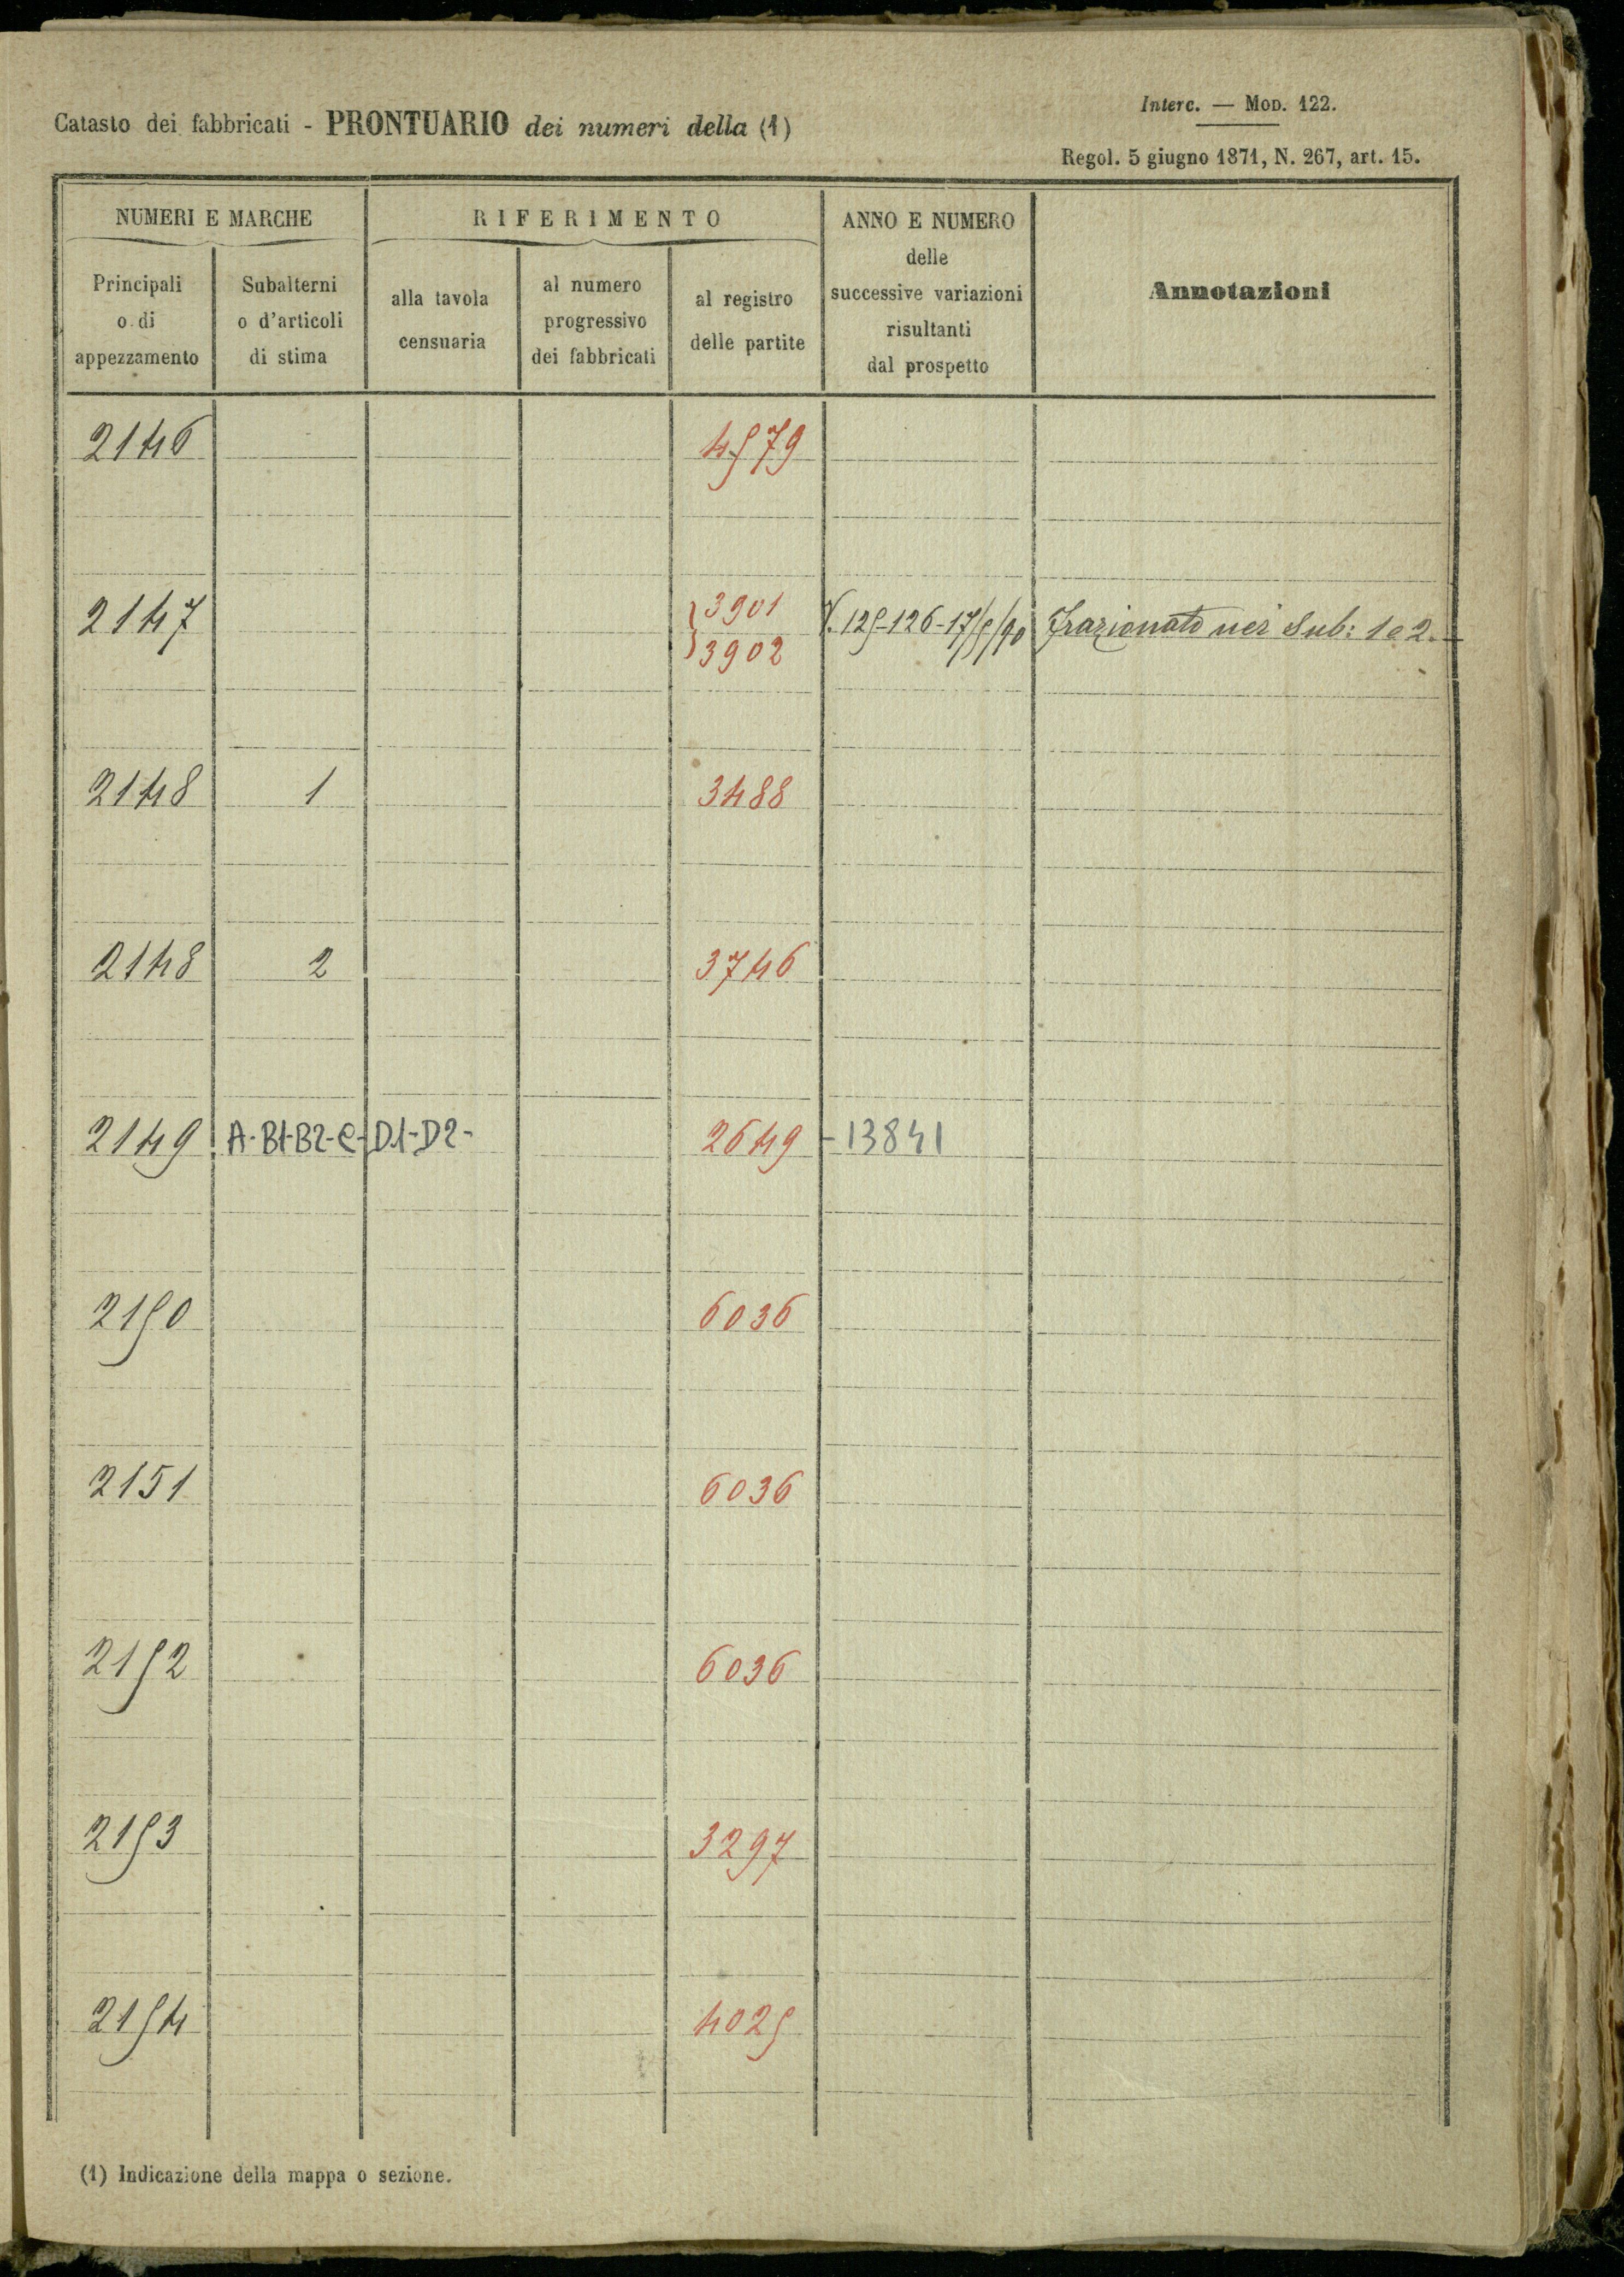 Catasto dei fabbricati - PRONTUARIO dei numeri della (1)
Interc. — Mod. 122.
Regol. 5 giugno 1871, N. 267, art. 15.
NUMERI E MARCHE
RIFERIMENTO
ANNO E NUMERO
delle
successive variazioni
risultanti
dal prospetto
Annotazioni
Principali
o di
appezzamento
Subalterni
o d'articoli
di stima
alla tavola
censuaria
al numero
progressivo
dei fabbricati
al registro
delle partite
2146 4579
2147 3901
3902
V. 125-126-17/5/90 Frazionato nei Sub: 1 e 2. -
2148 1 3488
2148 2 3746
2149 A-B1-B2-C-D1-D2- 2649 - 13841
2150 6036
2151 6036
2152 6036
2153 3297
2154 4025
(1) Indicazione della mappa o sezione.